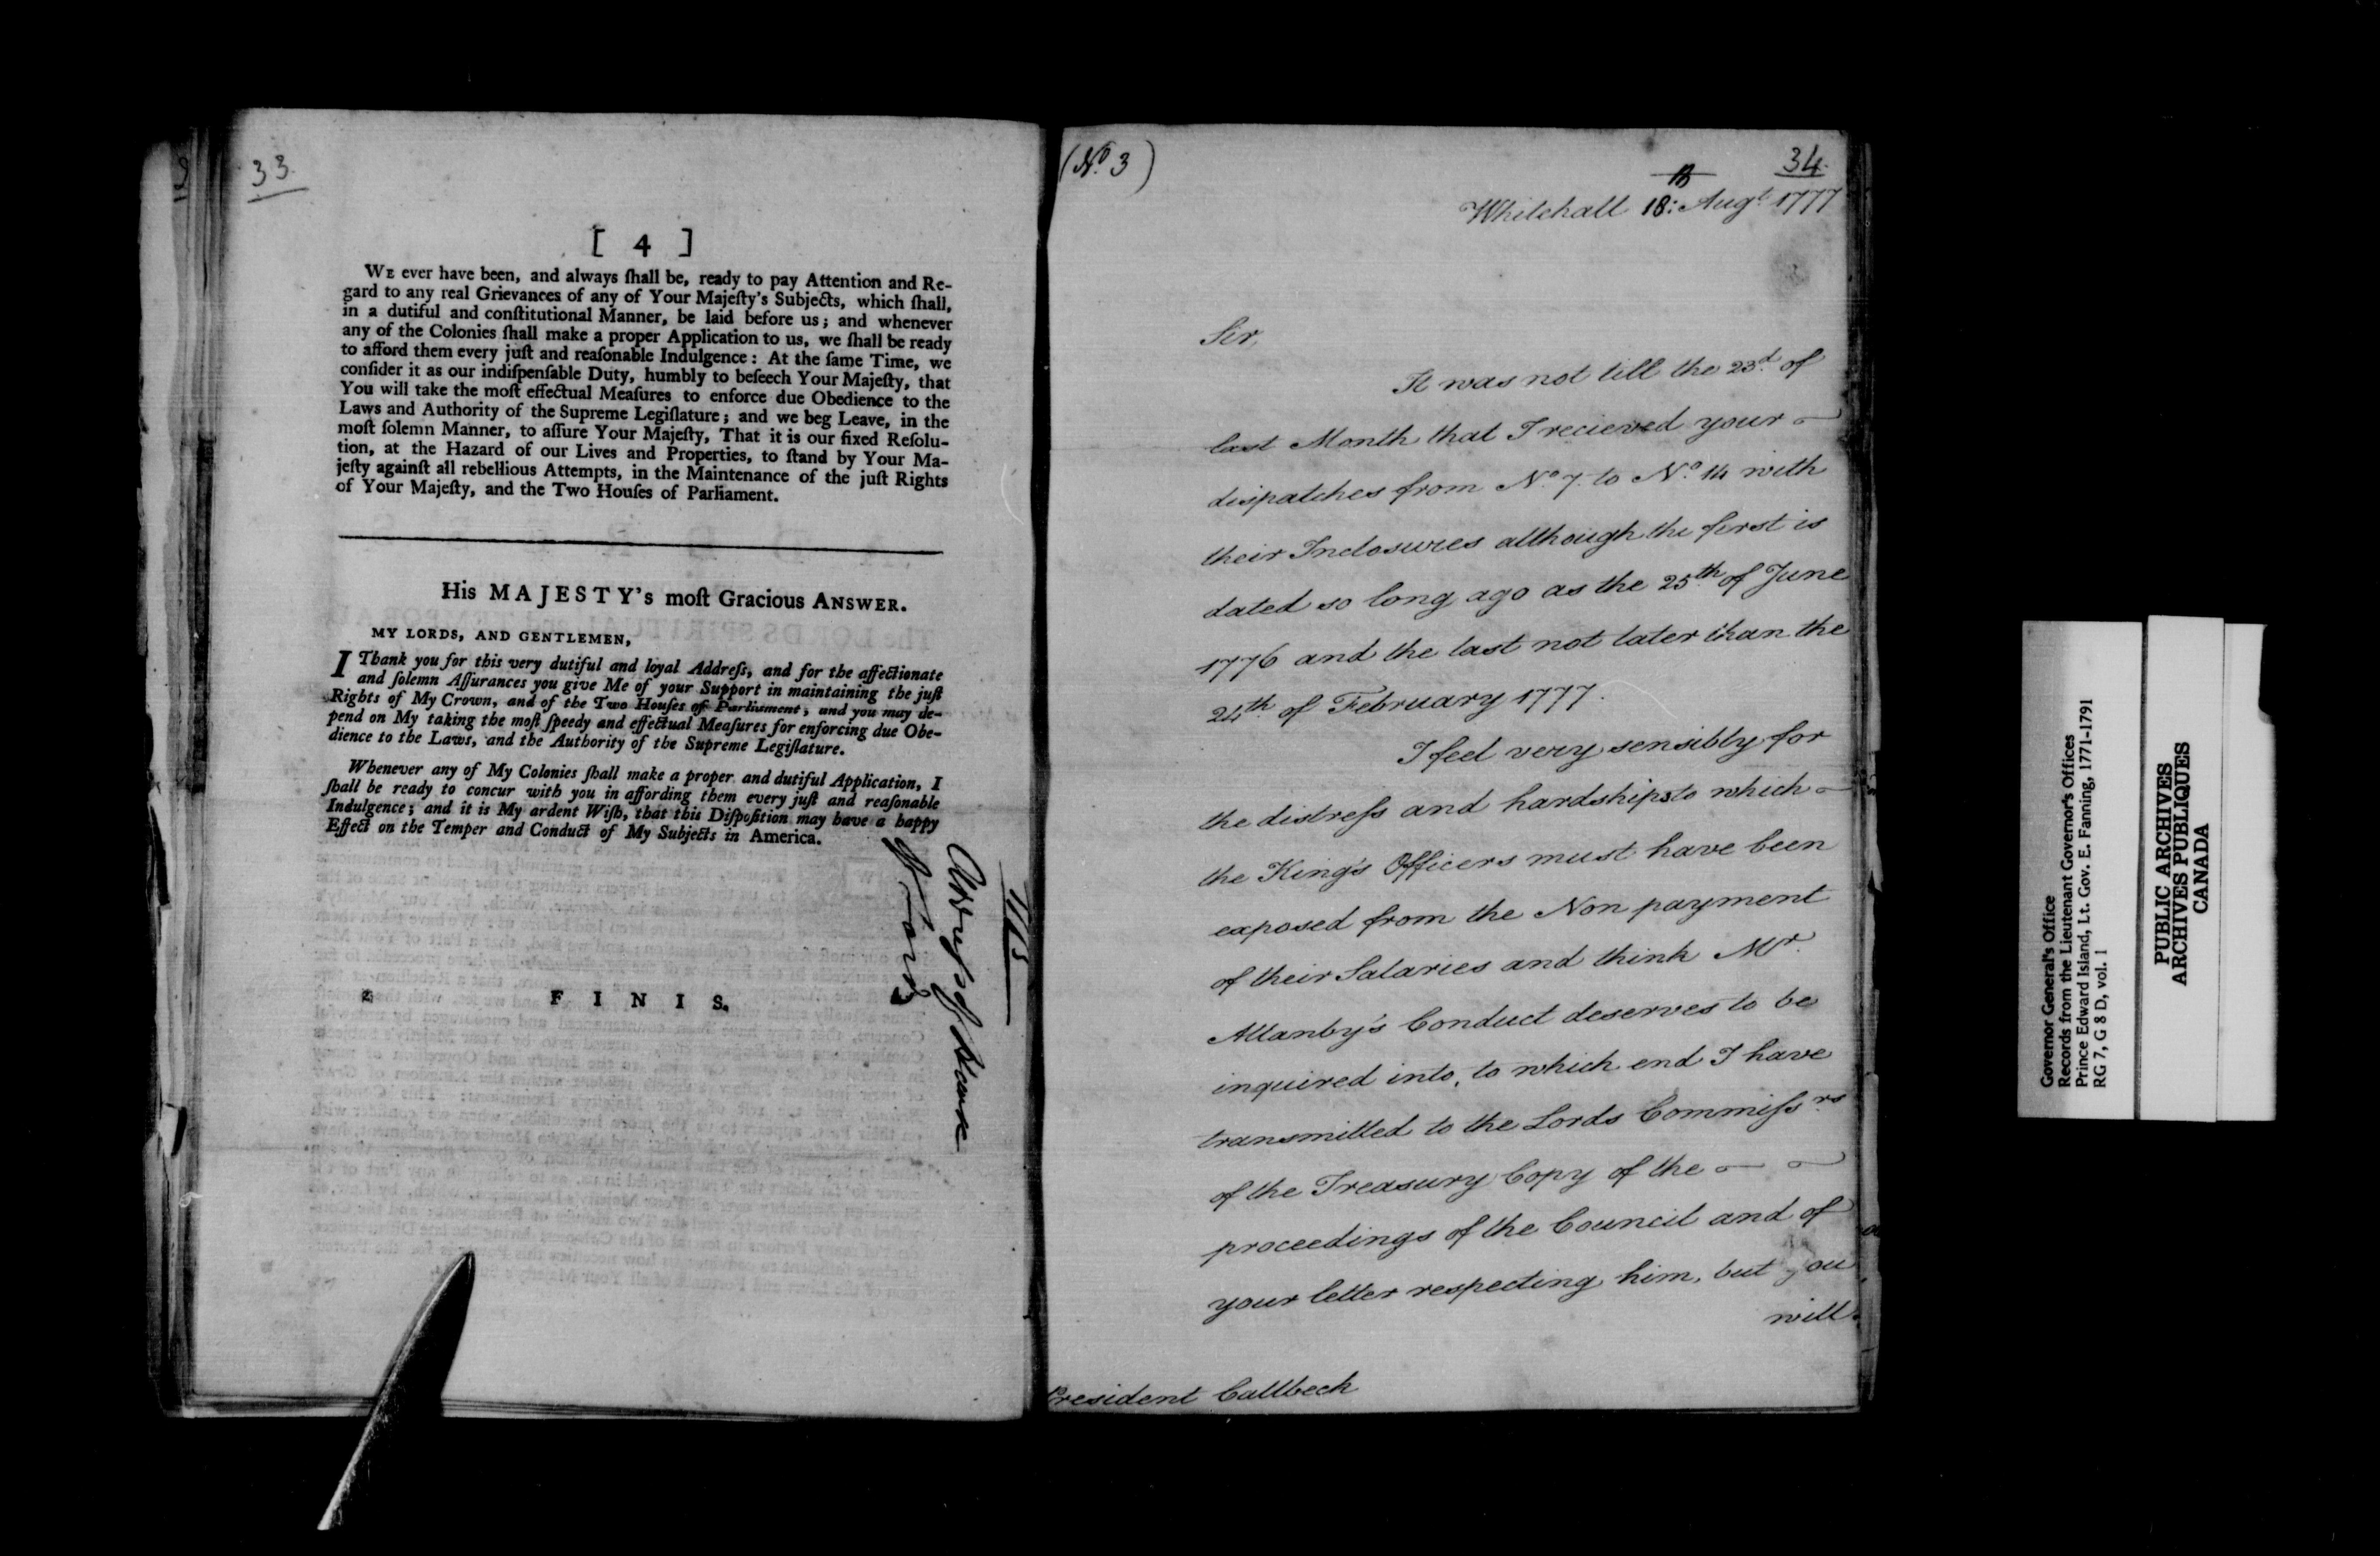 33.
[ 4 ]
WE ever have been, and always ſhall be, ready to pay Attention and Re-
gard to any real Grievances of any of Your Majeſty's Subjects, which ſhall,
in a dutiful and conſtitutional Manner, be laid before us; and whenever
any of the Colonies ſhall make a proper Application to us, we ſhall be ready
to afford them every juſt and reaſonable Indulgence: At the ſame Time, we
conſider it as our indiſpenſable Duty, humbly to beſeech Your Majeſty, that
You will take the moſt effectual Meaſures to enforce due Obedience to the
Laws and Authority of the Supreme Legiſlature; and we beg Leave, in the
moſt ſolemn Manner, to aſſure Your Majeſty, That it is our fixed Reſolu-
tion, at the Hazard of our Lives and Properties, to ſtand by Your Ma-
jeſty againſt all rebellious Attempts, in the Maintenance of the juſt Rights
of Your Majeſty, and the Two Houſes of Parliament.
His MAJESTY's moſt Gracious ANSWER.
MY LORDS, AND GENTLEMEN,
I Thank you for this very dutiful and loyal Addreſs, and for the affectionate
and ſolemn Aſſurances you give Me of your Support in maintaining the juſt
Rights of My Crown, and of the Two Houſes of Parliament; and you may de-
pend on My taking the moſt ſpeedy and effectual Meaſures for enforcing due Obe-
dience to the Laws, and the Authority of the Supreme Legiſlature.
Whenever any of My Colonies ſhall make a proper and dutiful Application, I
ſhall be ready to concur with you in affording them every juſt and reaſonable
Indulgence; and it is My ardent Wiſh, that this Diſpoſition may have a happy
Effect on the Temper and Conduct of My Subjects in America.
FINIS.
(No. 3)
34.
Whitehall 18: Augt. 1777
Sir,
It was not till the 23d. of
last Month that I recieved your
dispatches from No. 7. to No. 14 with
their Inclosures although the first is
dated so long ago as the 25th. of June
1776 and the last not later than the
24th. of February 1777.
I feel very sensibly for
the distreſs and hardships to which
the King's Officers must have been
exposed from the Non payment
of their Salaries and think Mr.
Allanby's Conduct deserves to be
inquired into, to which end I have
transmitted to the Lords Commiſsrs.
of the Treasury Copy of the
proceedings of the Council and of
your letter respecting him, but you
will
President Callbeck
Governor General's Office
Records from the Lieutenant Governor's Offices
Prince Edward Island, Lt. Gov. E. Fanning, 1771-1791
RG 7, G 8 D, vol. 1
PUBLIC ARCHIVES
ARCHIVES PUBLIQUES
CANADA